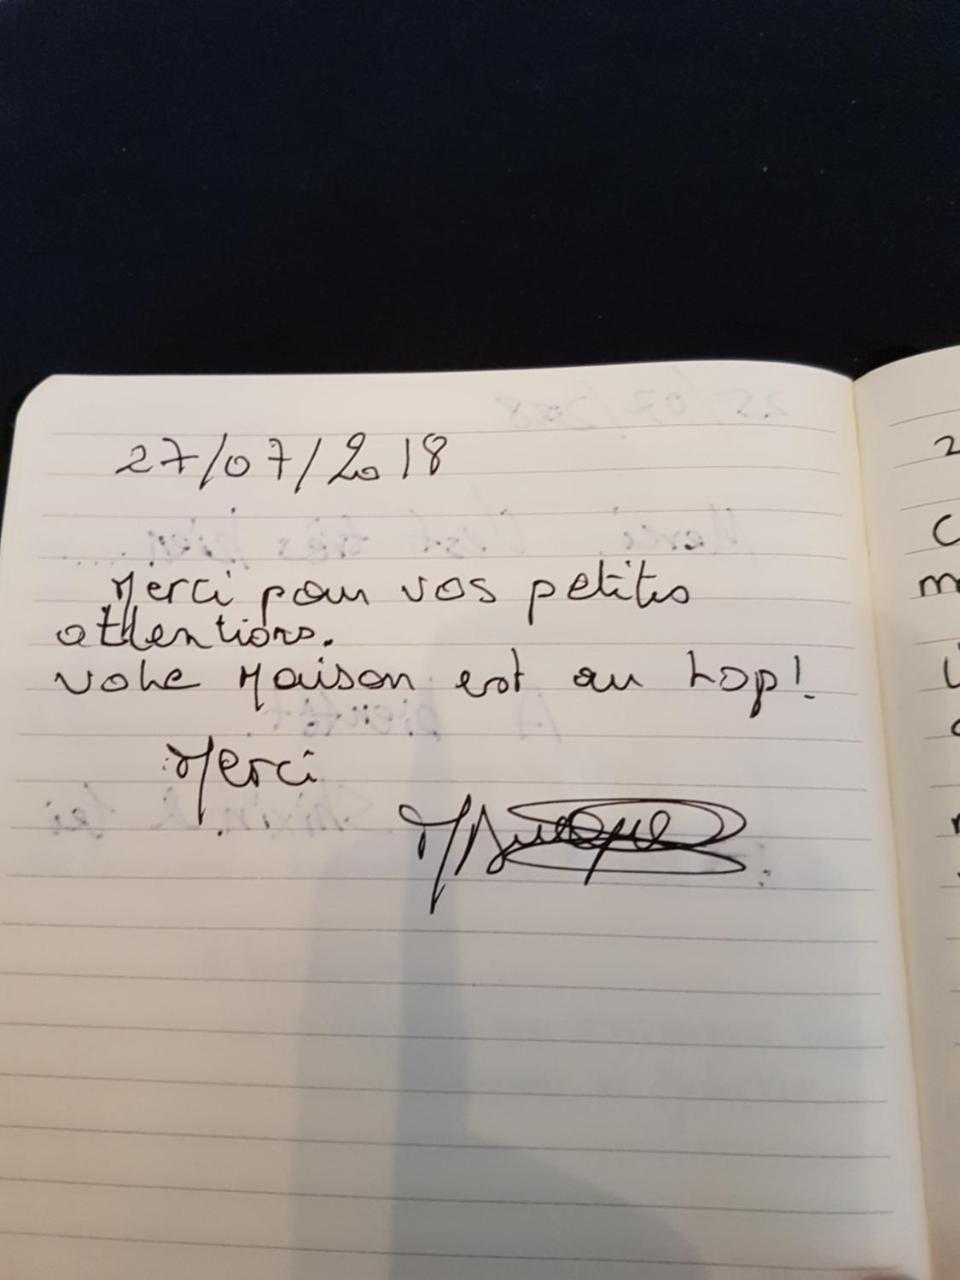 27/07/2018
Merci pour vos petites
attentions.
votre Maison est au top!
Merci